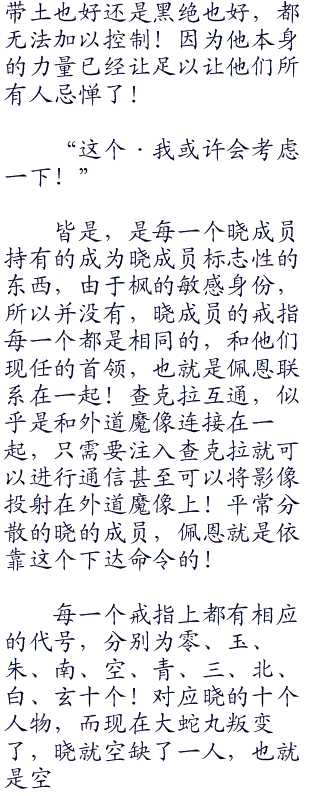 带土也好还是黑绝也好，都
无法加以控制！因为他本身
的力量已经让足以让他们所
有人忌惮了！
“这个·我或许会考虑
一下！”
皆是，是每一个晓成员
持有的成为晓成员标志性的
东西，由于枫的敏感身份，
所以并没有，晓成员的戒指
每一个都是相同的，和他们
现任的首领，也就是佩恩联
系在一起！查克拉互通，似
乎是和外道魔像连接在一
起，只需要注入查克拉就可
以进行通信甚至可以将影像
投射在外道魔像上！平常分
散的晓的成员，佩恩就是依
靠这个下达命令的！
每一个戒指上都有相应
的代号，分别为零、玉、
朱、南、空、青、三、北、
白、玄十个！对应晓的十个
人物，而现在大蛇丸叛变
了，晓就空缺了一人，也就
是空